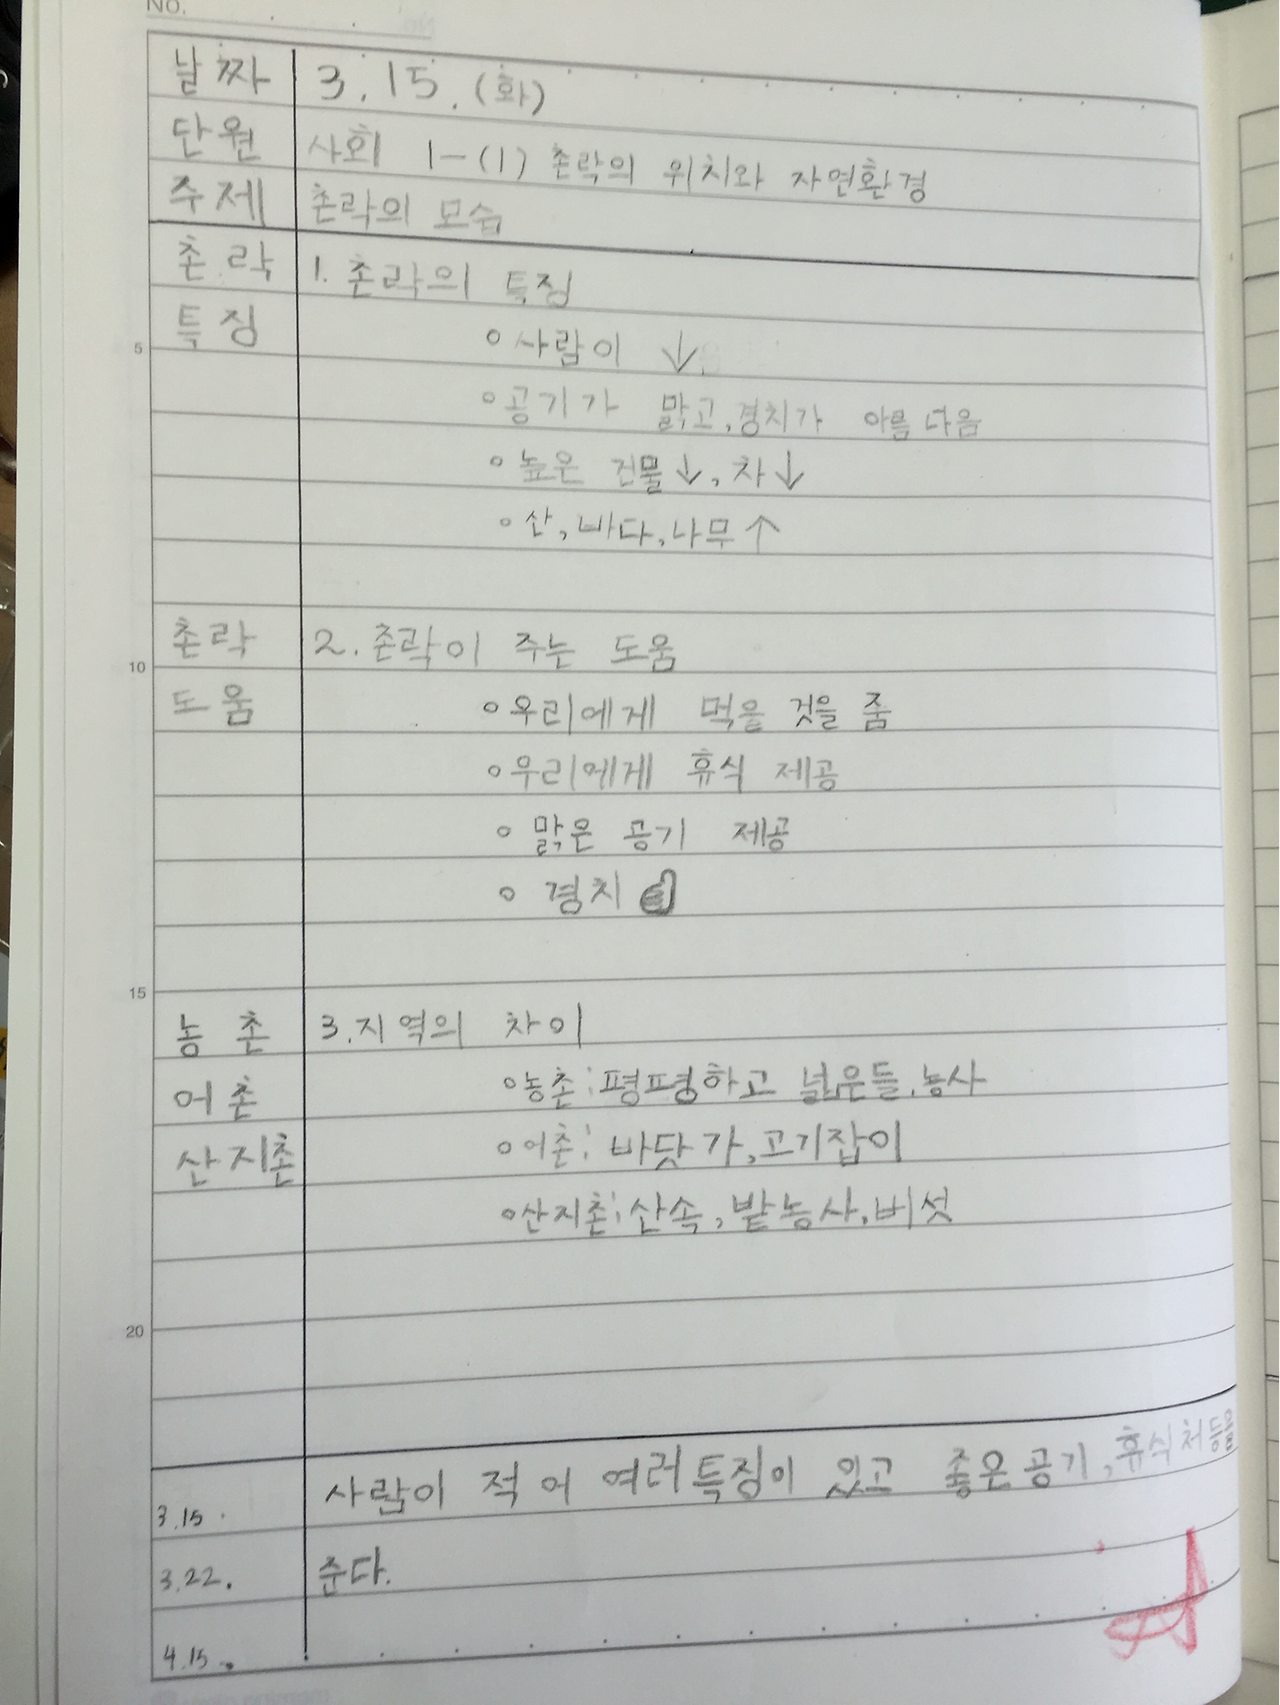 No.
날짜 3.15.(화)
단원 사회 1-(1) 촌락의 위치와 자연환경
주제 촌락의 모습
촌락 1. 촌락의 특징
5 특징 ∘사람이 ↓
∘공기가 맑고, 경치가 아름다움
∘높은 건물↓, 차↓
∘산, 바다, 나무↑
10 촌락 2. 촌락이 주는 도움
도움 ∘우리에게 먹을 것을 줌
∘우리에게 휴식 제공
∘맑은 공기 제공
∘경치👍
15
농촌 3. 지역의 차이
어촌 ∘농촌: 평평하고 넓은들, 농사
산지촌 ∘어촌: 바닷가, 고기잡이
∘산지촌: 산속, 밭농사, 버섯
20
3.15. 사람이 적어 여러특징이 있고 좋은공기, 휴식처등을
3.22. 준다.
4.15.